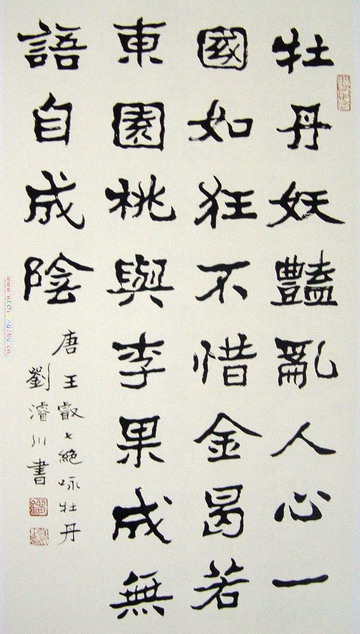 牡丹妖豔亂人心一
國如狂不惜金曷若
東園桃與李果成無
語自成陰
唐王叡七絕咏牡丹
劉濬川書